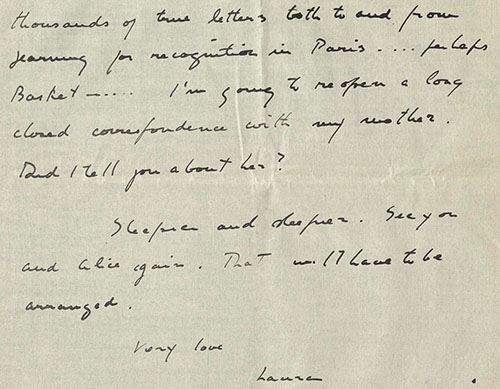 thousands of true letters both to and from
yearning for recognition in Paris .... perhaps
Basket — .... I'm going to reopen a long
closed correspondence with my mother.
Did I tell you about her?
Sleepier and sleepier. See you
and Alice again. That will have to be
arranged.
Very love
Laura